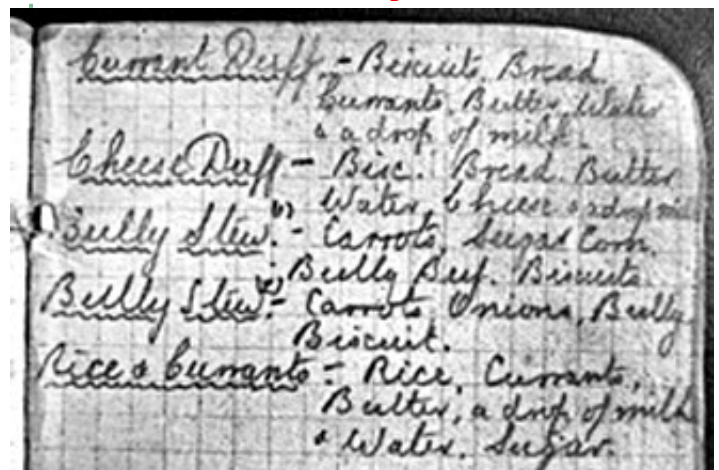 Currant Duff. - Biscuits, Bread
Currants, Butter, Water
& a drop of milk.
Cheese Duff - Bisc. Bread. Butter
Water, Cheese & a drop milk
Bully Stew. (1) - Carrots, Sugar Corn.
Bully Beef. Biscuits
Bully Stew. (2) - Carrots, Onions, Bully
Biscuit.
Rice & Currants - Rice, Currants,
Butter, a drop of milk
& Water. Sugar.